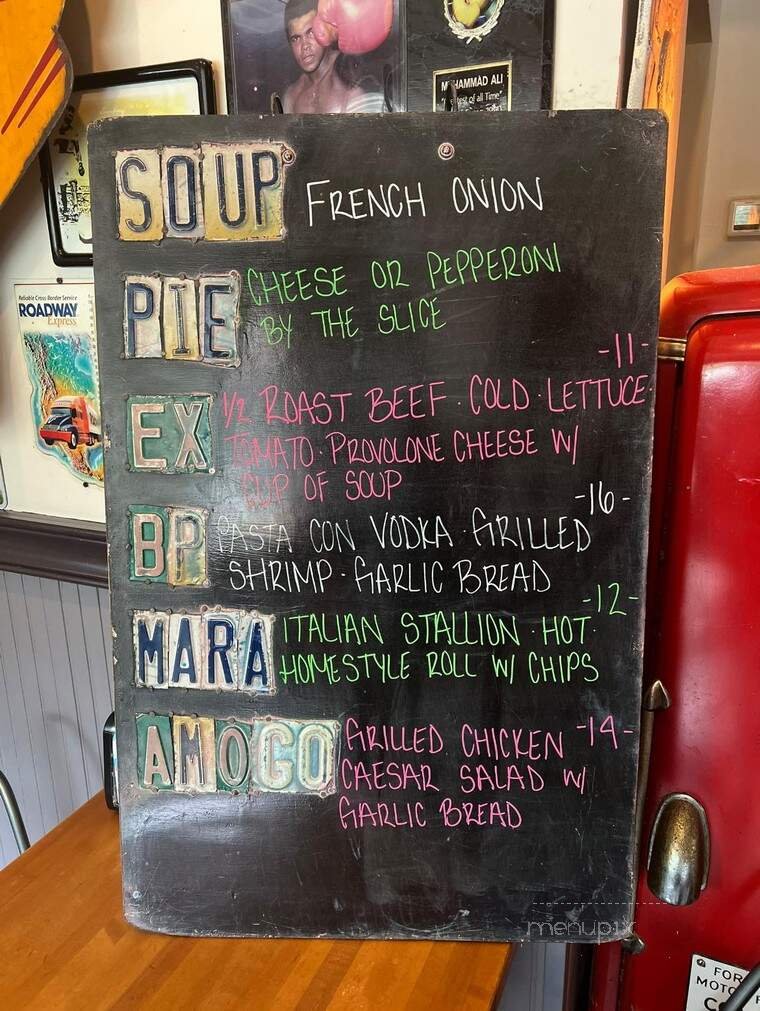 MUHAMMAD ALI
SOUP FRENCH ONION
PIE CHEESE OR PEPPERONI
BY THE SLICE
-11-
EX 1/2 ROAST BEEF · COLD · LETTUCE
TOMATO · PROVOLONE CHEESE W/
CUP OF SOUP
-16-
BP PASTA CON VODKA · GRILLED
SHRIMP · GARLIC BREAD
-12-
MARA ITALIAN STALLION · HOT ·
HOMESTYLE ROLL W/ CHIPS
AMOGO GRILLED CHICKEN -14-
CAESAR SALAD W/
GARLIC BREAD
Reliable Cross Border Service
ROADWAY
Express
menupix
FOR